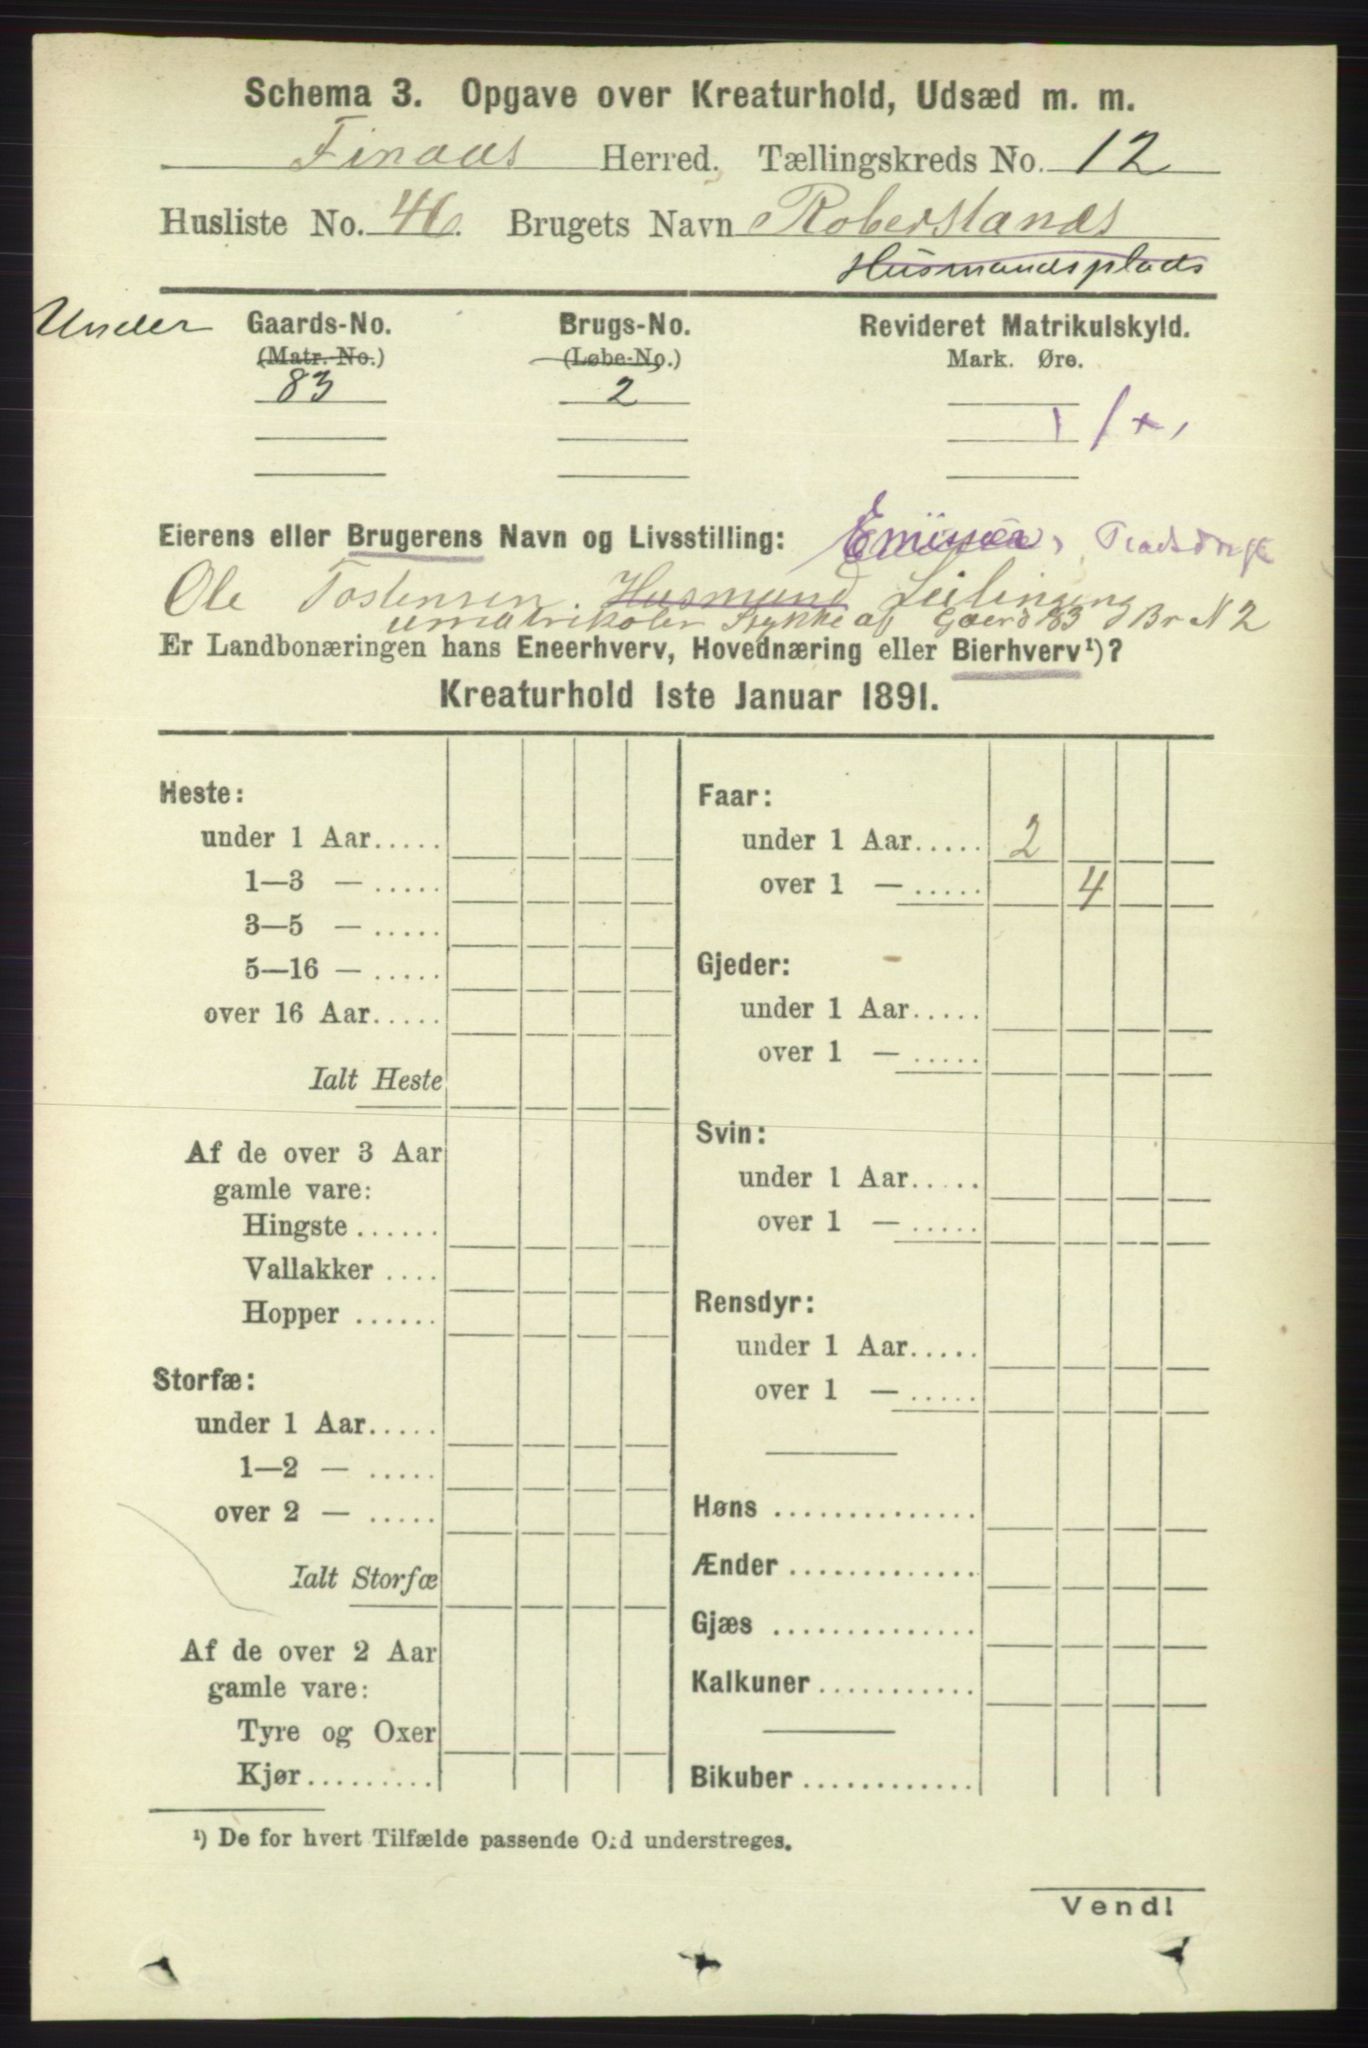 Schema 3. Opgave over Kreaturhold, Udsæd m. m.
Finaas Herred. Tællingskreds No. 12
Husliste No. 46. Brugets Navn Roberstands
Husmandsplads
Under Gaards-No. Brugs-No. Revideret Matrikulskyld.
(Matr.-No.) (Løbe-No.) Mark. Øre.
83 2
Eierens eller Brugerens Navn og Livsstilling:
Ole Tostensen. Husmand Leilinging
umatrikuler Stykke af Gaard 83 Br N 2
Er Landbonæringen hans Eneerhverv, Hovednæring eller Bierhverv¹)?
Kreaturhold 1ste Januar 1891.
Heste:
under 1 Aar.....
1—3 — .....
3—5 — .....
5—16 — .....
over 16 Aar.....
Ialt Heste
Af de over 3 Aar
gamle vare:
Hingste ......
Vallakker ....
Hopper ......
Storfæ:
under 1 Aar.....
1—2 — .....
over 2 — .....
Ialt Storfæ
Af de over 2 Aar
gamle vare:
Tyre og Oxer
Kjør.........
Faar:
under 1 Aar..... 2
over 1 — ..... 4
Gjeder:
under 1 Aar.....
over 1 — .....
Svin:
under 1 Aar.....
over 1 — .....
Rensdyr:
under 1 Aar.....
over 1 — .....
Høns ..............
Ænder .............
Gjæs ..............
Kalkuner ...........
Bikuber ............
¹) De for hvert Tilfælde passende Ord understreges.
Vend!